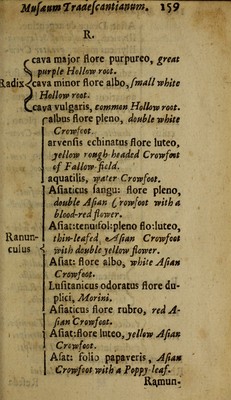 Musæum Tradescantianum. 159
R.
cava major flore purpureo, great
purple Hollow root.
Radix cava minor flore albo, small white
Hollow root.
cava vulgaris, common Hollow root.
albus flore pleno, double white
Crowfoot.
arvensis echinatus flore luteo,
yellow rough-headed Crowfoot
of Fallow-field.
aquatilis, water Crowfoot.
Asiaticus sangu: flore pleno,
double Asian Crowfoot with a
blood-red flower.
Asiat:tenuifol:pleno flo:luteo,
Ranun- thin-leafed Asian Crowfoot
culus with double yellow flower.
Asiat: flore albo, white Asian
Crowfoot.
Lusitanicus odoratus flore du-
plici, Morini.
Asiaticus flore rubro, red A-
sian Crowfoot.
Asiat:flore luteo, yellow Asian
Crowfoot.
Asat: folio papaveris, Asian
Crowfoot with a Poppy-leaf.
Ramun-